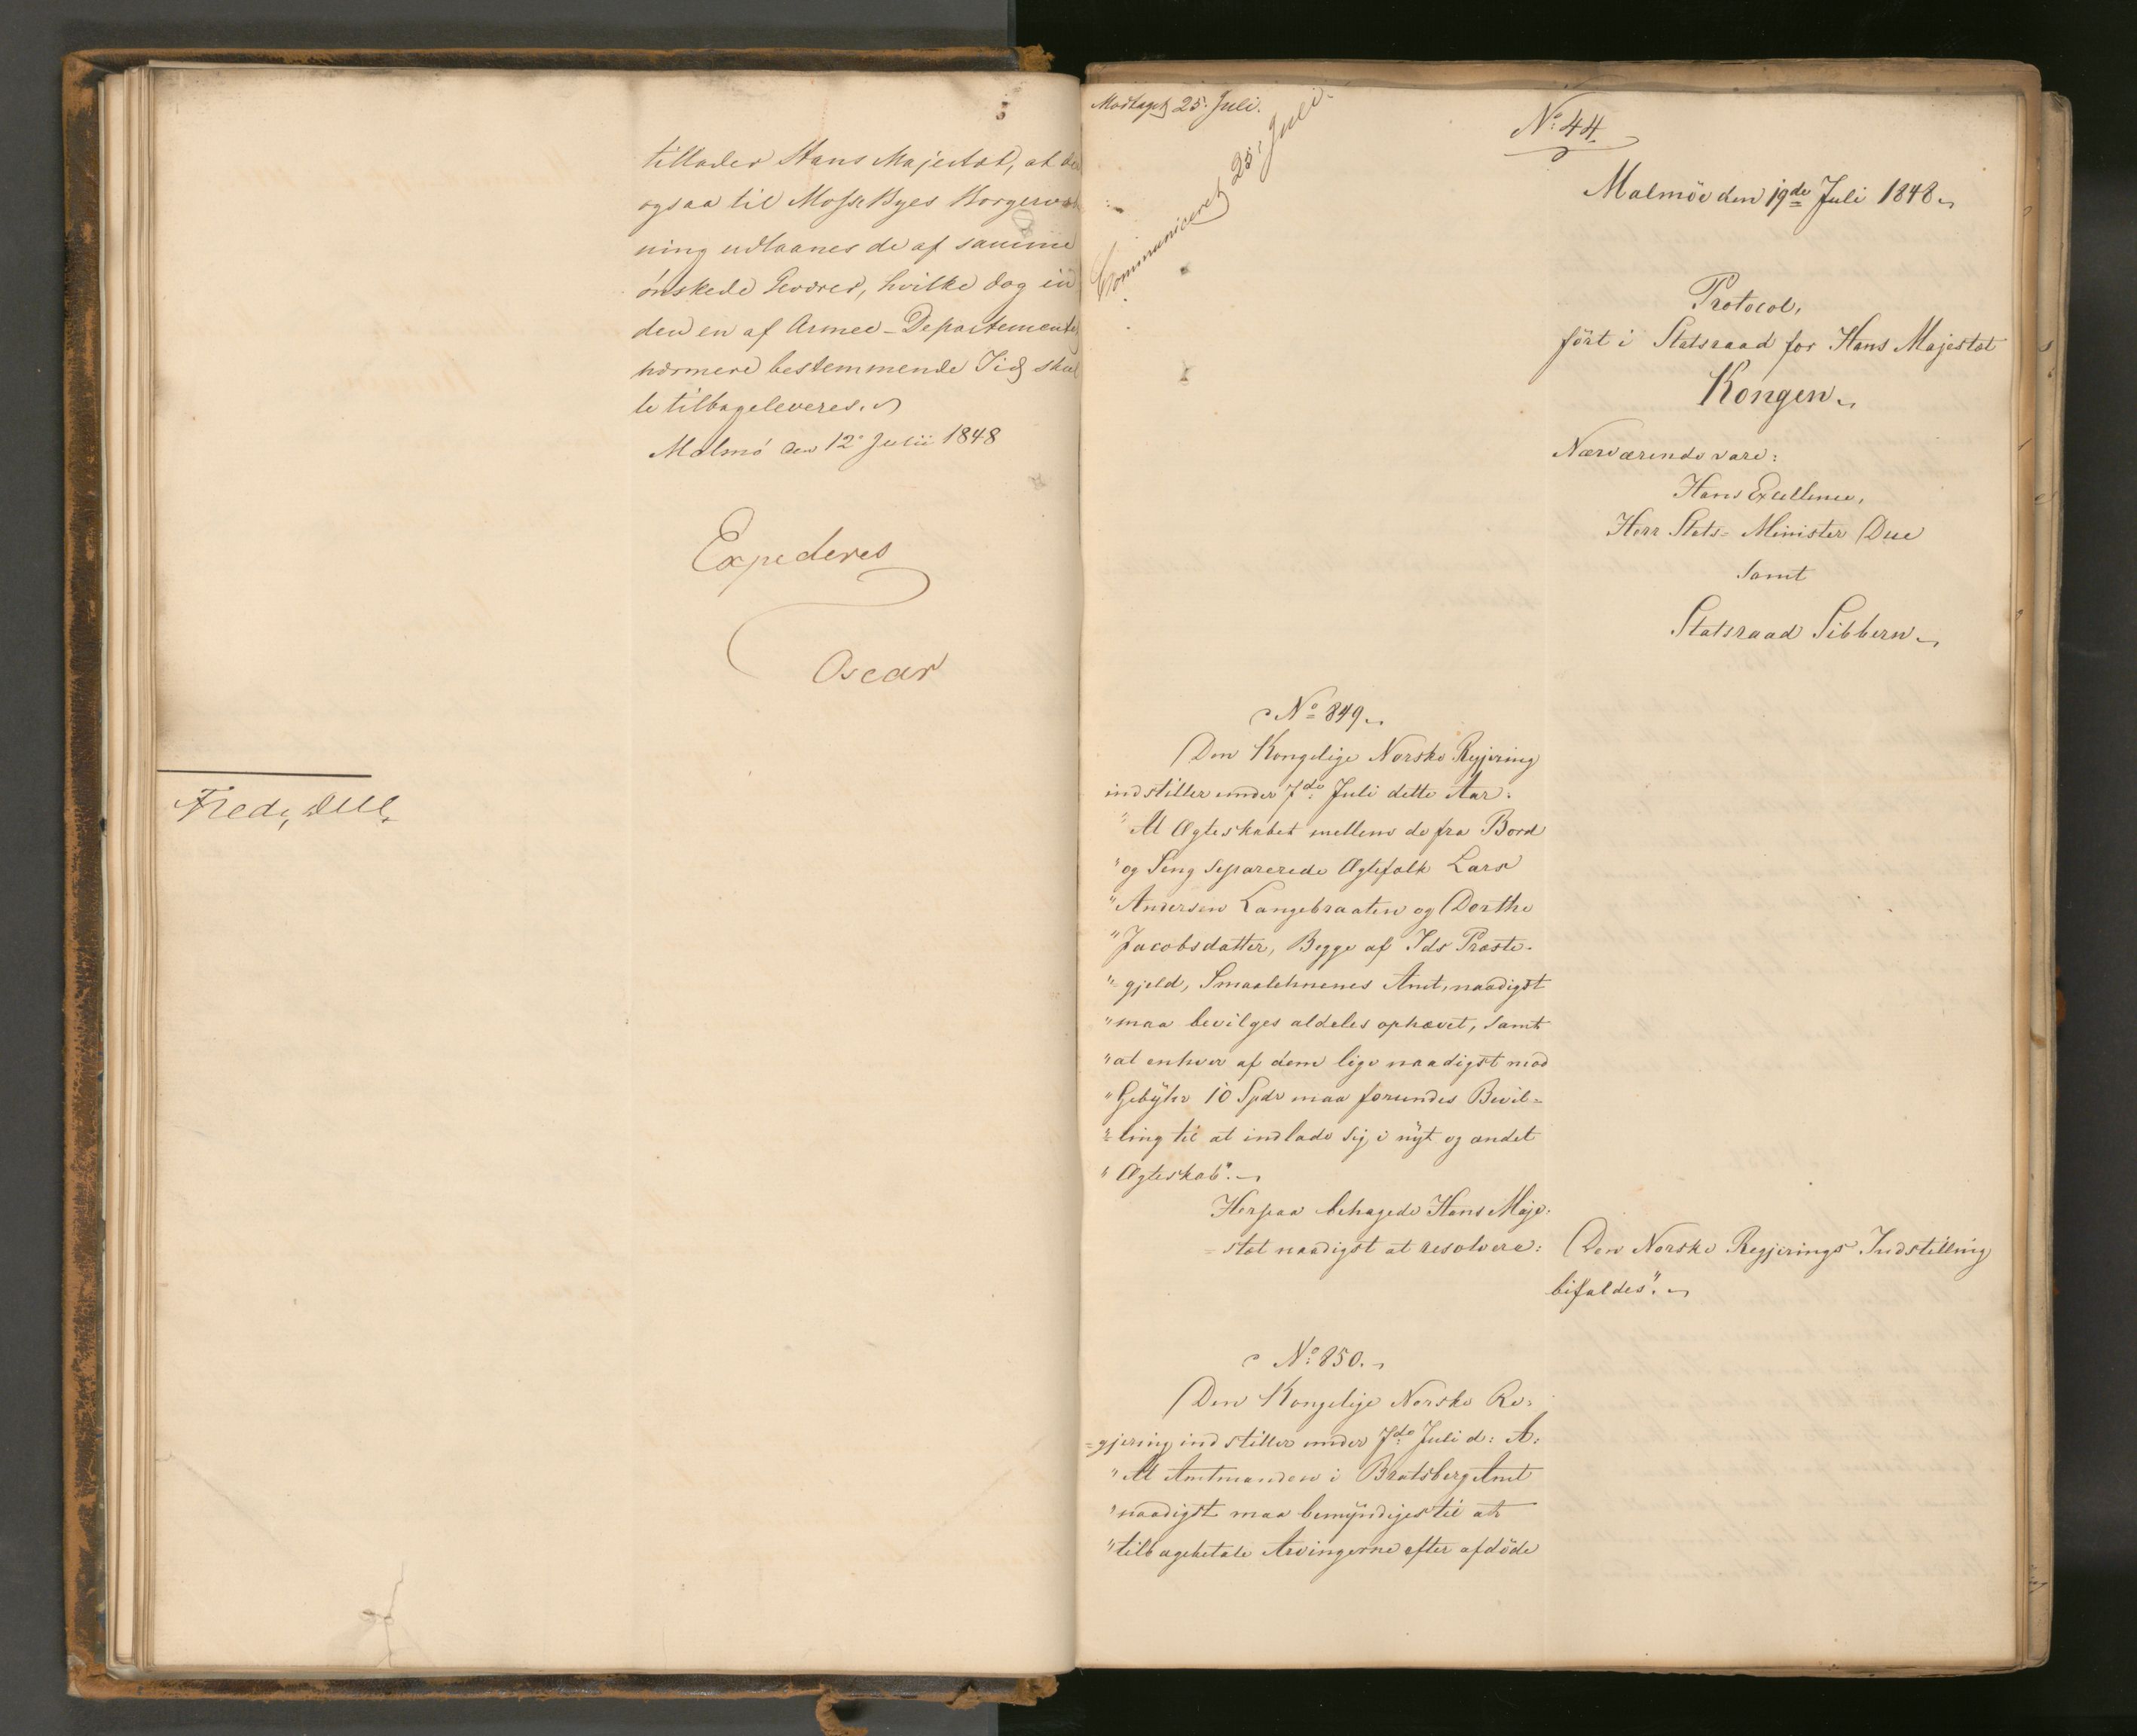 tillader Hans Majestæt, at der
ogsaa til Mosse Byes Borgervæb-
ning udlaanes de af samme
önskede Geværer, hvilke dog in
den en af Armee-Departementet
nærmere bestemmende Tid skul
le tilbageleveres.
Malmö den 12' Julii 1848
Expederes
Oscar
Fred. Due.
Modtaget 25. Juli.
Communiceret 25. Juli.
No: 44.
Malmöe den 19de Juli 1848.
Protocol,
fört i Statsraad for Hans Majestæt
Kongen.
Nærværende vare:
Hans Excellence,
Herr Stats-Minister Due
samt
Statsraad Sibbern.
No 849.
Den Kongelige Norske Regjering
indstiller under 7de Juli dette Aar:
"At Ægteskabet mellem de fra Bord
"og Seng separerede Ægtefolk Lars
"Andersen Langebraaten og Dorthe
"Jacobsdatter, Begge af Ids Præste-
"gjeld, Smaalehnenes Amt, naadigst
"maa bevilges aldeles ophævet, samt
"at enhver af dem lige naadigst mod
"Gebÿhr 10 Spdr maa forundes Bevil=
"=ling til at indlade sig i nÿt og andet
"Ægteskab".
Herpaa behagede Hans Maje-
=stæt naadigst at resolvere:
Den Norske Regjerings Indstilling
bifaldes".
No: 850.
Den Kongelige Norske Re=
=gjering indstiller under 7de Juli d: A:
"At Amtmanden i Bratsberg Amt
"naadigst maa bemÿndiges til at
"tilbagebetale Arvingerne efter afdöde